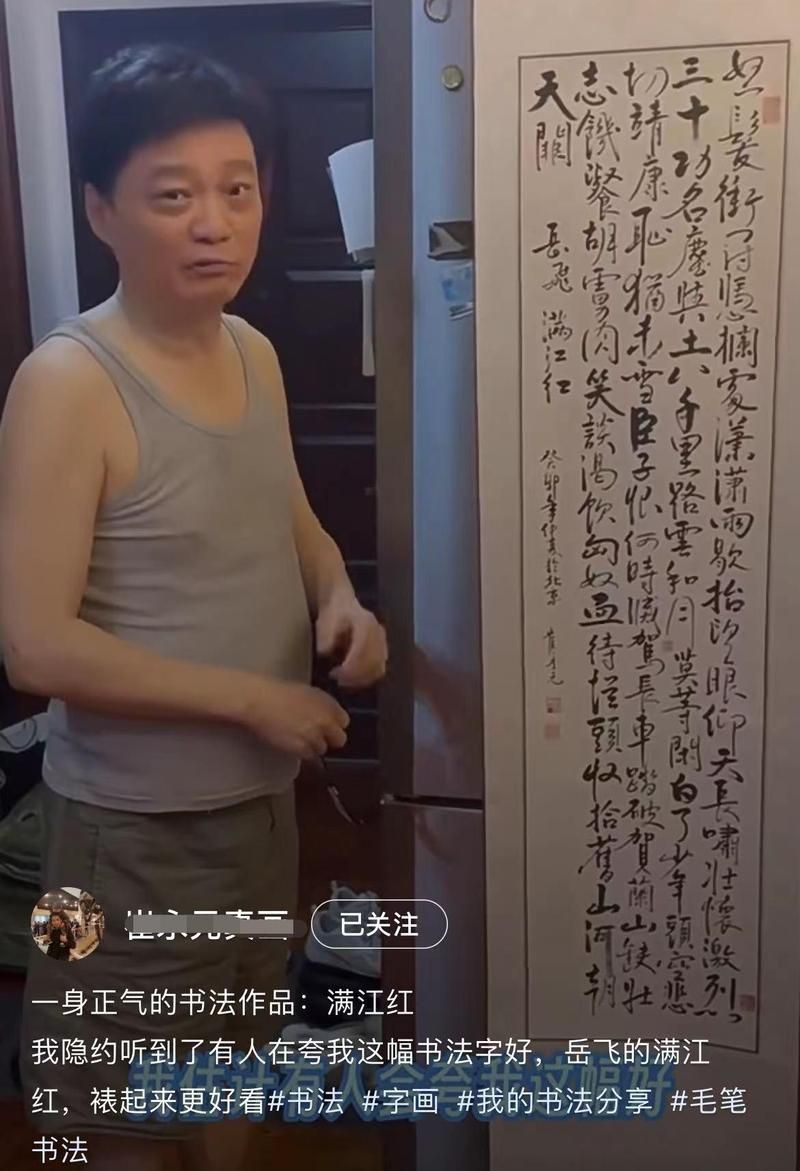 怒髮衝冠憑欄處潇潇雨歇抬望眼仰天長嘯壯懷激烈
三十功名塵與土八千里路雲和月莫等閑白了少年頭空悲
切靖康恥猶未雪臣子恨何時滅駕長車踏破賀蘭山缺壯
志饑餐胡虜肉笑談渴飲匈奴血待從頭收拾舊山河朝
天闕 岳飛 滿江红
癸卯年仲夏於北京 崔永元
已关注
一身正气的书法作品：满江红
我隐约听到了有人在夸我这幅书法字好，岳飞的满江
红，裱起来更好看#书法 #字画 #我的书法分享 #毛笔
书法
我估计有人会夸我这幅好